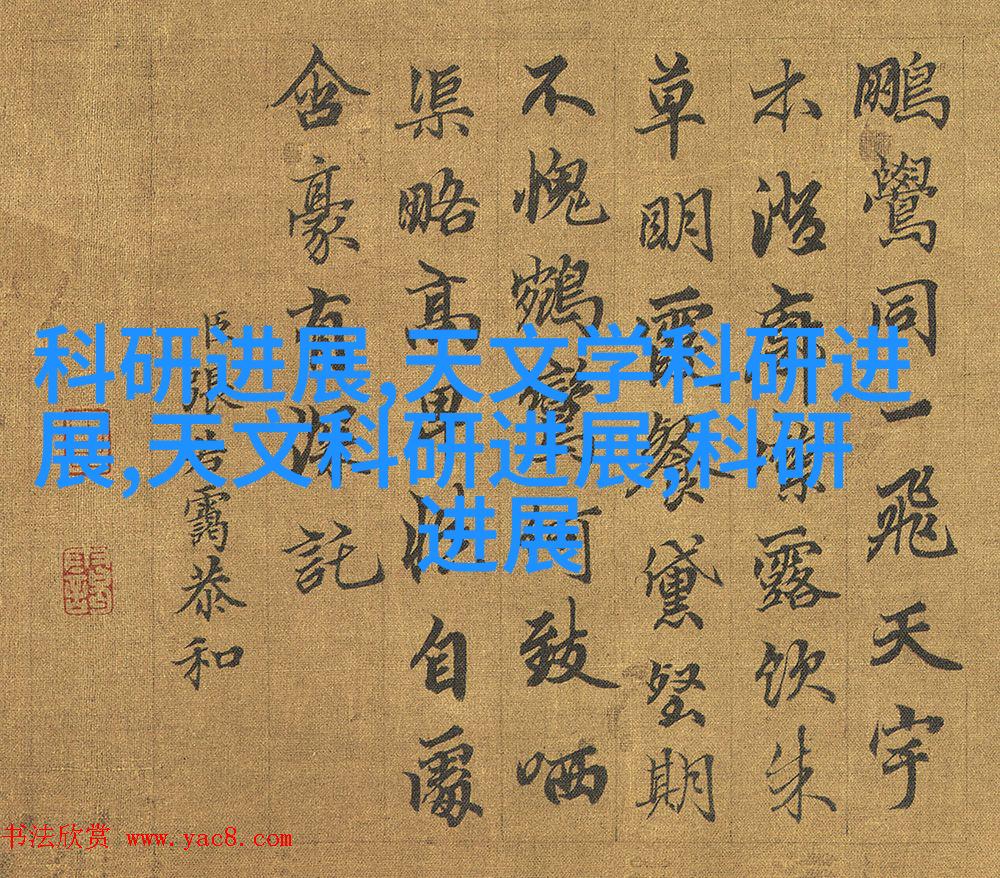 科研进展,天文学科研进
展,天文科研进展,科研
进展
鵬鷽同一飛天宇
木澄露飲朱
草明霞餐黛壑期
不愧鶴何致哂
渠略高自
含豪有託
臣張若靄恭和
书法欣赏 www.yac8.com